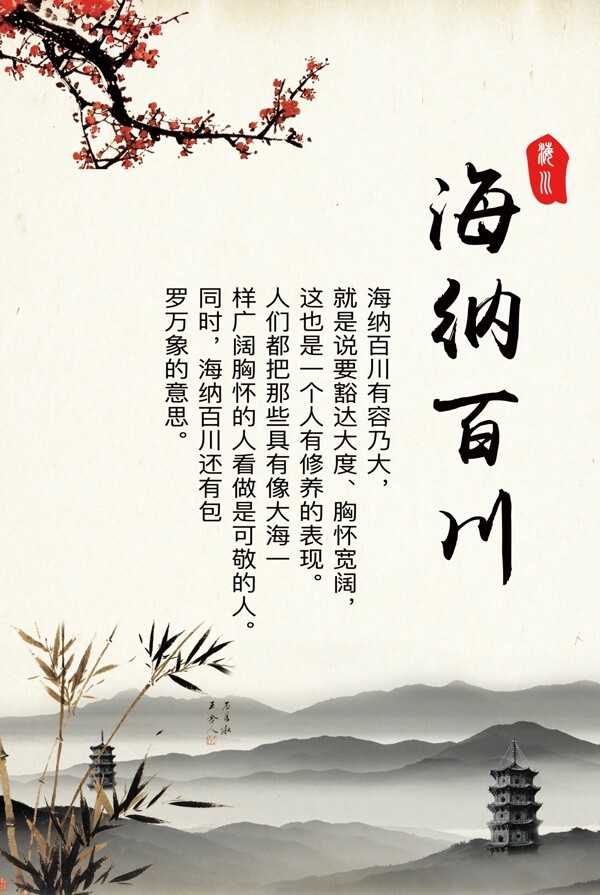 海川
海纳百川
海纳百川有容乃大，
就是说要豁达大度、胸怀宽阔，
这也是一个人有修养的表现。
人们都把那些具有像大海一
样广阔胸怀的人看做是可敬的人。
同时，海纳百川还有包
罗万象的意思。